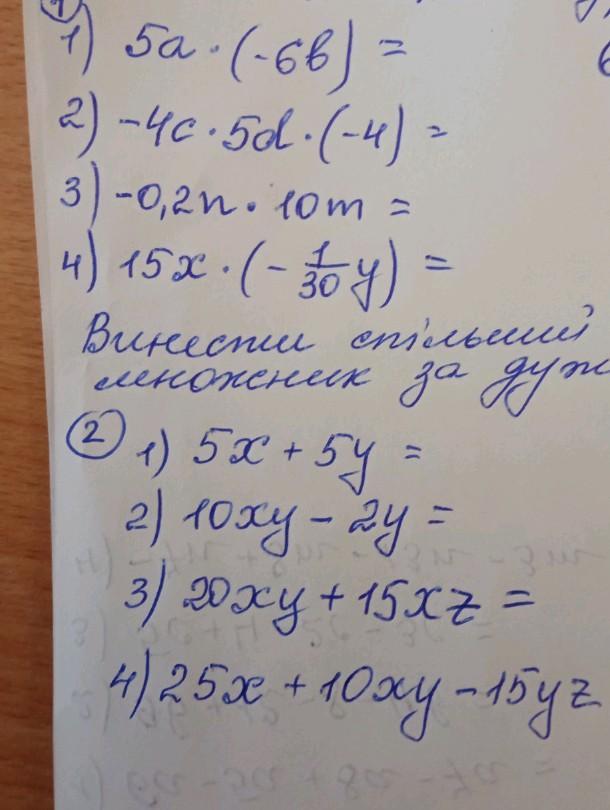 1) 5a · (-6b) =
2) -4c · 5d · (-4) =
3) -0,2n · 10m =
4) 15x · (- 1/30 y) =
Винести спільний
множник за дуж
2 1) 5x + 5y =
2) 10xy - 2y =
3) 20xy + 15xz =
4) 25x + 10xy - 15yz